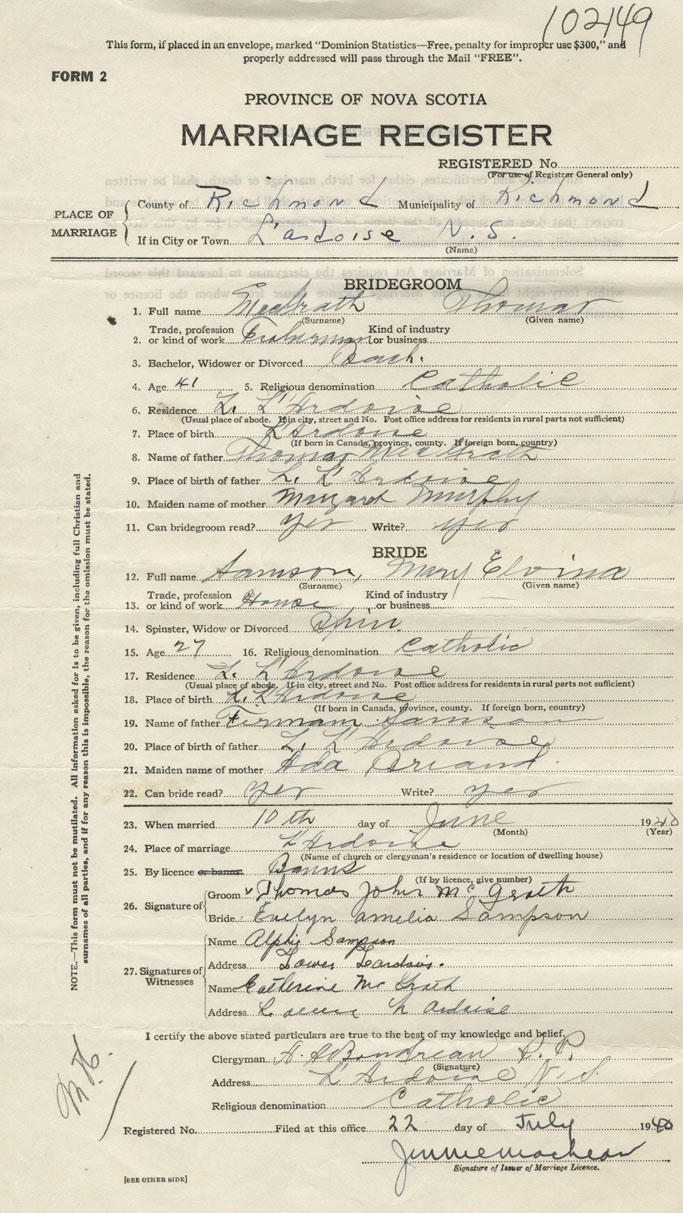 102149
This form, if placed in an envelope, marked "Dominion Statistics—Free, penalty for improper use $300," and
properly addressed will pass through the Mail "FREE".
FORM 2
PROVINCE OF NOVA SCOTIA
MARRIAGE REGISTER
REGISTERED No.
(For use of Registrar General only)
PLACE OF MARRIAGE
County of Richmond Municipality of Richmond
If in City or Town L'ardoise N.S.
(Name)
BRIDEGROOM
1. Full name MacGrath Thomas
(Surname) (Given name)
Trade, profession Kind of industry
2. or kind of work Fisherman or business
3. Bachelor, Widower or Divorced Bach.
4. Age 41 5. Religious denomination Catholic
6. Residence L. L'Ardoise
(Usual place of abode. If in city, street and No. Post office address for residents in rural parts not sufficient)
7. Place of birth L'Ardoise
(If born in Canada, province, county. If foreign born, country)
8. Name of father Thomas MacGrath
9. Place of birth of father L. L'Ardoise
10. Maiden name of mother Margaret Murphy
11. Can bridegroom read? yes Write? yes
BRIDE
12. Full name Samson, Mary Elvina
(Surname) (Given name)
Trade, profession Kind of industry
13. or kind of work House or business
14. Spinster, Widow or Divorced Spin.
15. Age 27 16. Religious denomination Catholic
17. Residence L. L'Ardoise
(Usual place of abode. If in city, street and No. Post office address for residents in rural parts not sufficient)
18. Place of birth L. L'Ardoise
(If born in Canada, province, county. If foreign born, country)
19. Name of father Firmain Samson
20. Place of birth of father L. L'Ardoise
21. Maiden name of mother Ada Briand
22. Can bride read? yes Write? yes
23. When married 10th day of June 1940
(Month) (Year)
24. Place of marriage L'Ardoise
(Name of church or clergyman's residence or location of dwelling house)
25. By licence or banns Banns
(If by licence, give number)
26. Signature of Groom Thomas John McGrath
Bride Evelyn amelia Sampson
27. Signatures of Witnesses
Name Alphie Sampson
Address Lower Lardois.
Name Catherine McGrath
Address Lower L'ardoise
I certify the above stated particulars are true to the best of my knowledge and belief.
Clergyman Boudreau P.P.
(Signature)
Address L'Ardoise N.S
Religious denomination Catholic
Registered No. Filed at this office 22 day of July 1940
Signature of Issuer of Marriage Licence.
[SEE OTHER SIDE]
NOTE.—This form must not be mutilated. All information asked for is to be given, including full Christian and
surnames of all parties, and if for any reason this is impossible, the reason for the omission must be stated.